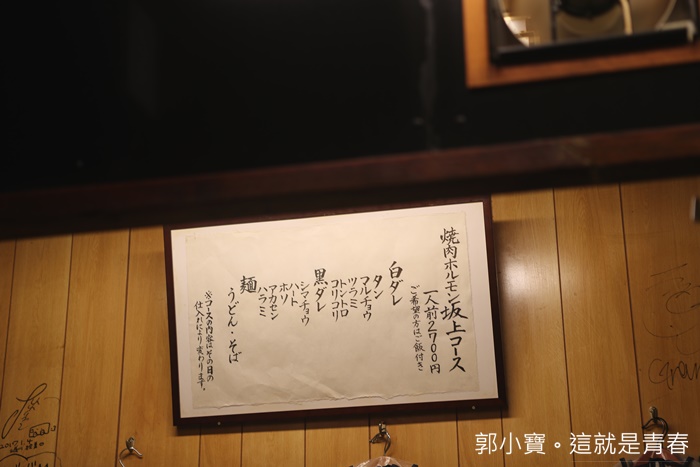 焼肉ホルモン坂上コース
一人前2700円
ご希望の方はご飯付き
白ダレ
タン
マルチョウ
ツラミ
トントロ
コリコリ
黒ダレ
シマチョウ
ハート
ホソ
アカセン
ハラミ
麺
うどん・そば
※コースの内容はその日の
仕入れにより変わります。
郭小寶。這就是青春